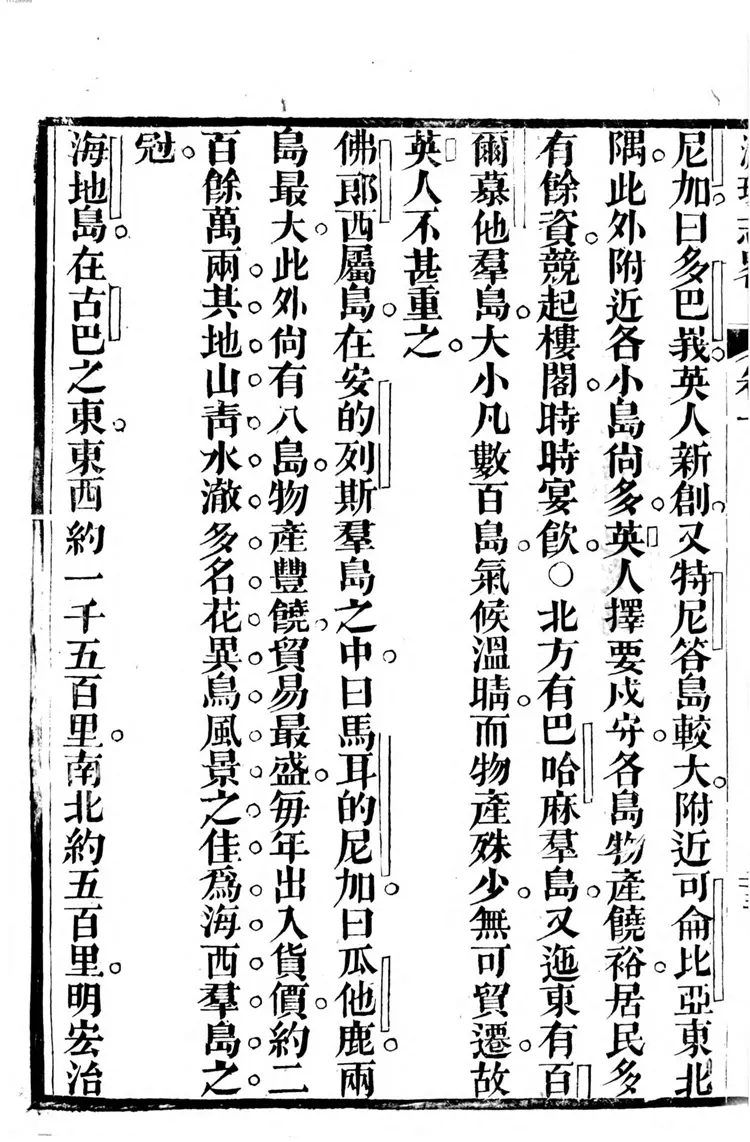 尼加曰多巴峩英人新創又特尼答島較大附近可侖比亞東北
隅此外附近各小島尙多英人擇要戍守各島物產饒裕居民多
有餘資競起樓閣時時宴飮○北方有巴哈麻羣島又迤東有百
爾慕他羣島大小凡數百島氣候溫晴而物產殊少無可貿遷故
英人不甚重之
佛郎西屬島在安的列斯羣島之中曰馬耳的尼加曰瓜他鹿兩
島最大此外尙有八島物產豐饒貿易最盛每年出入貨價約二
百餘萬兩其地山靑水澈多名花異鳥風景之佳爲海西羣島之
冠
海地島在古巴之東東西約一千五百里南北約五百里明宏治